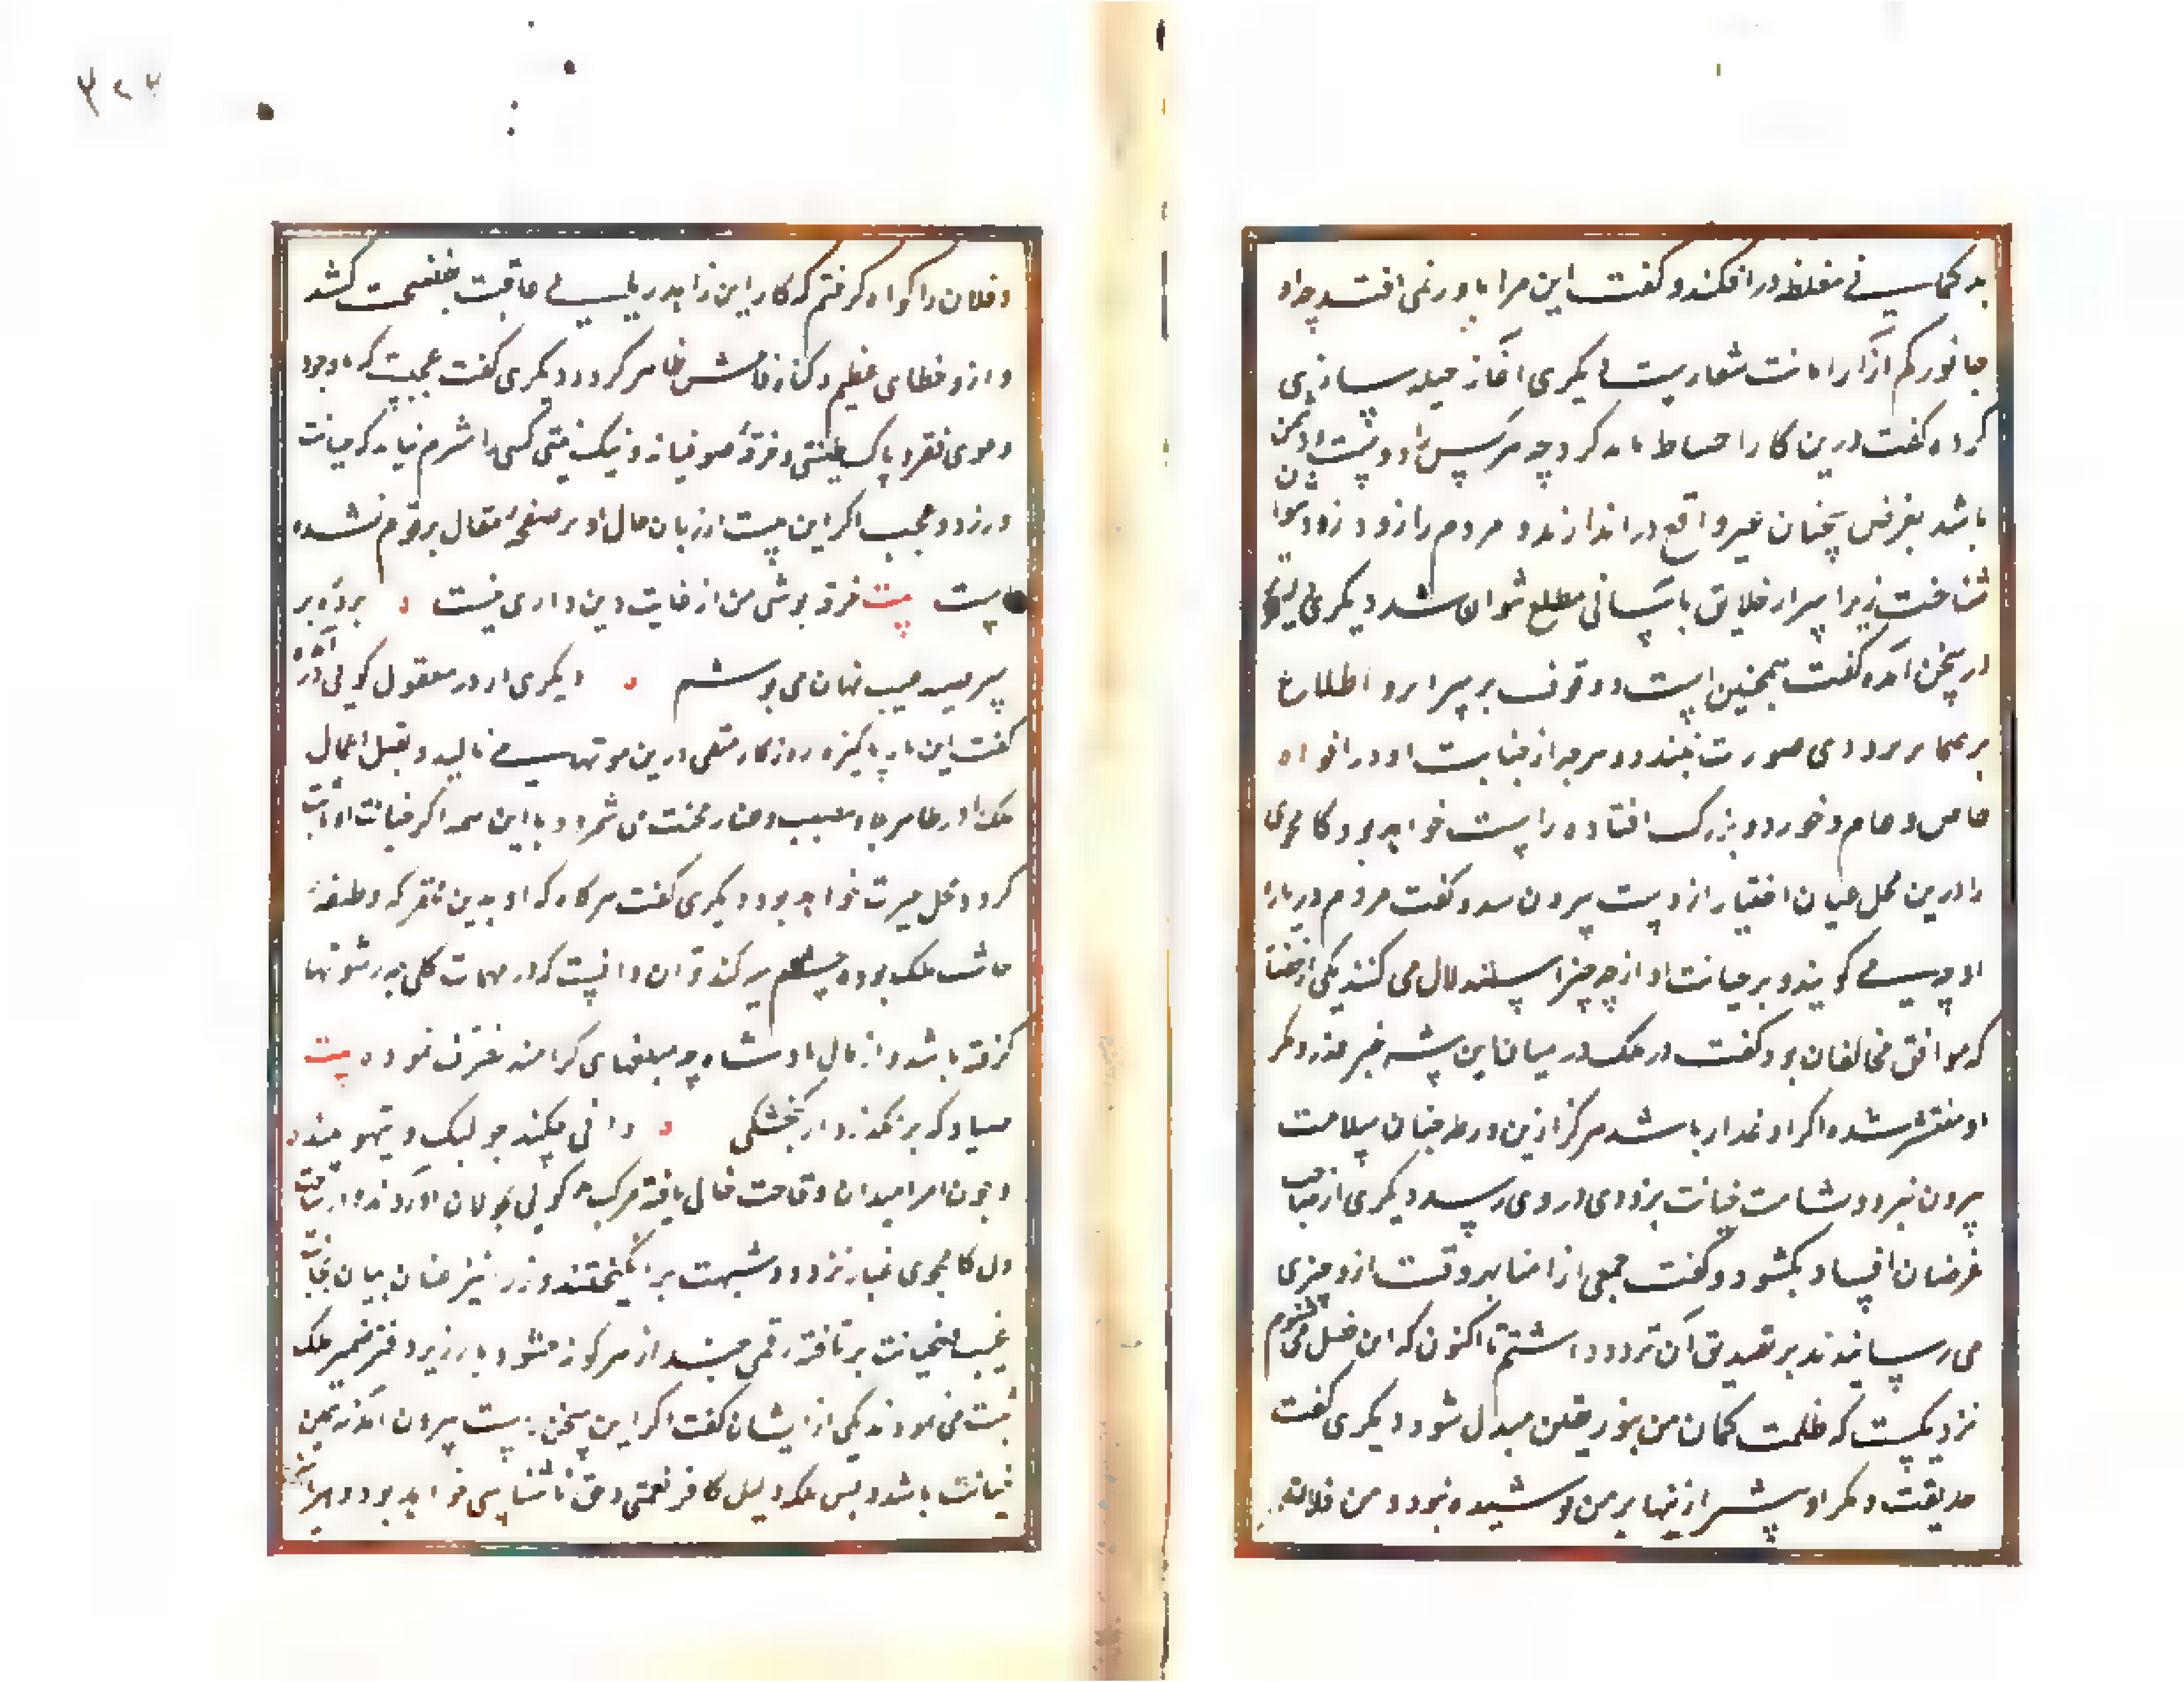 بد کمانی مغلظ در افکند و کفت این مرا باور نمی افتد چرا او
جانور کم آزار امانت شعارست دیکری آغاز حیله سازی
کرده کفت درین کار احتیاط باید کرد چه هرکس را دوست و دشمن
باشد بغرض سخنان غیر واقع در اندازند و مردم را زود زود نتوان
شناخت زیرا اسرار خلایق باسانی مطلع نتوان شد دیکری
در سخن آمده کفت همچنین است و وقوف بر سرایر و اطلاع
بر ضمایر بزودی صورت نبندد و هر چه از خیانت او در افواه
خاص و عام و خورد و بزرک افتاده راست خواهد بود کامجوی
را درین محل عنان اختیار از دست بیرون شد و کفت مردم در باره
او چه می کویند و بر خیانت او از چه چیز استدلال می کنند یکی از حضار
که موافق مخالفان بود کفت در ملک در میان این بیشه خبر غدر و مکر
او منتشر شده اکر او غدار باشد هرکز ازین ورطه جان بسلامت
بیرون نبرد و شامت خیانت بزودی در وی رسد دیکری از صاحب
غرضان افساد بکشود و کفت جمعی از اینها هر وقت ازو چیزی
می رسانیدند بر تصدیق آن تردد داشتم تا اکنون که این فصل می شنوم
نزدیکست که ظلمت کمان من بنور یقین مبدل شود دیکری کفت
حدیقت و مکر او پیش ازینها بر من پوشیده نبود و من فلان
و فلان را کواه کرفتم که کار این زاهد ریایی عاقبت بفضیحت کشد
و ازو خطای عظیم و کناه فاحش ظاهر کردد دیکری کفت عجبست که باوجود
دعوی فقر و پاک طینتی و خرقهٔ صوفیانه و نیک نیتی کسی را شرم نیاید که خیانت
ورزد و عجب اکر این بیت از زبان حال او بر صفحهٔ مقال مرقوم نشده
بیت بیت خرقه پوشی من از غایت دین داری نیست برده بر
سر صد عیب نهان می پوشم دیکری از در معقول کویی درآمده
کفت این مار پاکیزه روزکار متقی درین مو تنها می نالید و تقبل اعمال
ملک را در ظاهر جاه مصیبت و عنا و محنت می شمرد و با این همه اکر خیانت او ثابت
کردد محل حیرت خواهد بود دیکری کفت هرکاه که او بدین محقر که وظیفهٔ
چاشت ملک بوده چشم سیر کند توان دانست که در مهمات کلی چه رشوتها
کرفته باشد و از مال پادشاه چه مبلغهای کرامند تصرف نموده بیت
صیاد که برنکذرد از کنجشکی دانی چکند چو کبک و تیهو بیند
و چون امرا میدان وقاحت خالی یافته مرکب کویی بجولان درآوردند و از ساحت
دل کامجوی غبار تردد و شبهت برانکیختند وزرا نیز عنان بیان بجانب
غیبت بخیانت برتافته رقمی چند از هر کونه منشور بارز بر دفتر ضمیر ملک
ثبت می نمودند یکی از ایشان کفت اکر این سخن راست بیرون آید نه همین
خیانت باشد و بس بلکه دلیل کافر نعمتی و حق ناشناسی خواهد بود